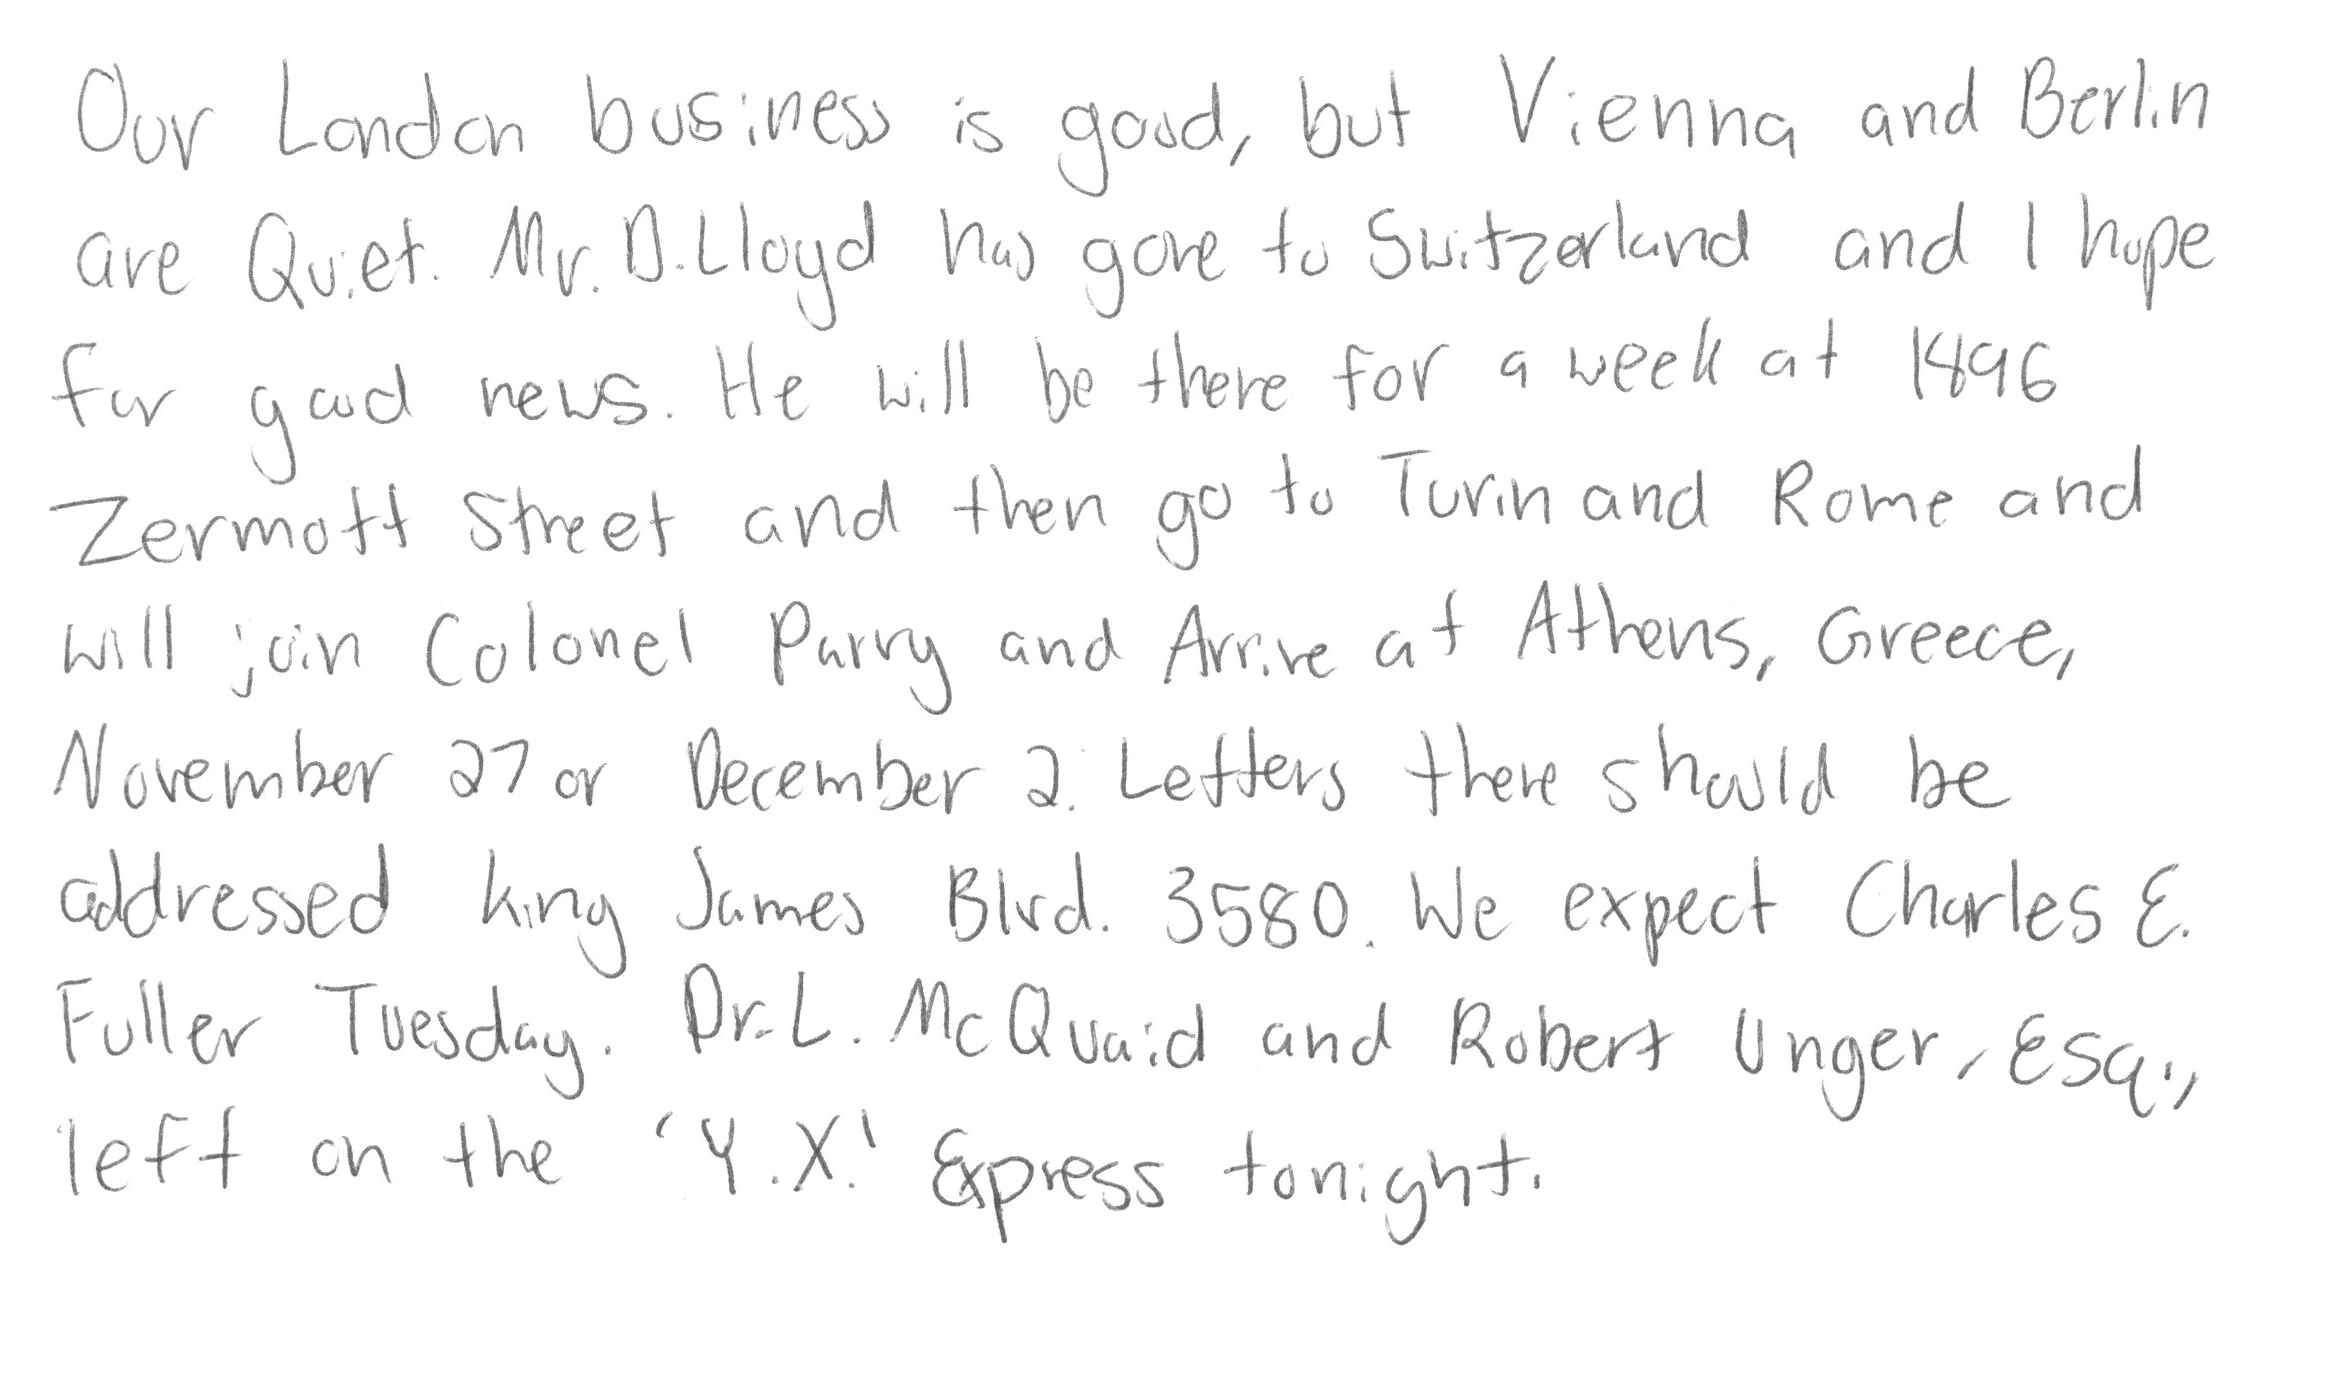 Our London business is good, but Vienna and Berlin
are Quiet. Mr. D. Lloyd has gone to Switzerland and I hope
for good news. He will be there for a week at 1896
Zermott Street and then go to Turin and Rome and
will join Colonel Parry and Arrive at Athens, Greece,
November 27 or December 2. Letters there should be
addressed King James Blvd. 3580. We expect Charles E.
Fuller Tuesday. Dr. L. McQuaid and Robert Unger, Esq.,
left on the 'Y.X.' Express tonight.